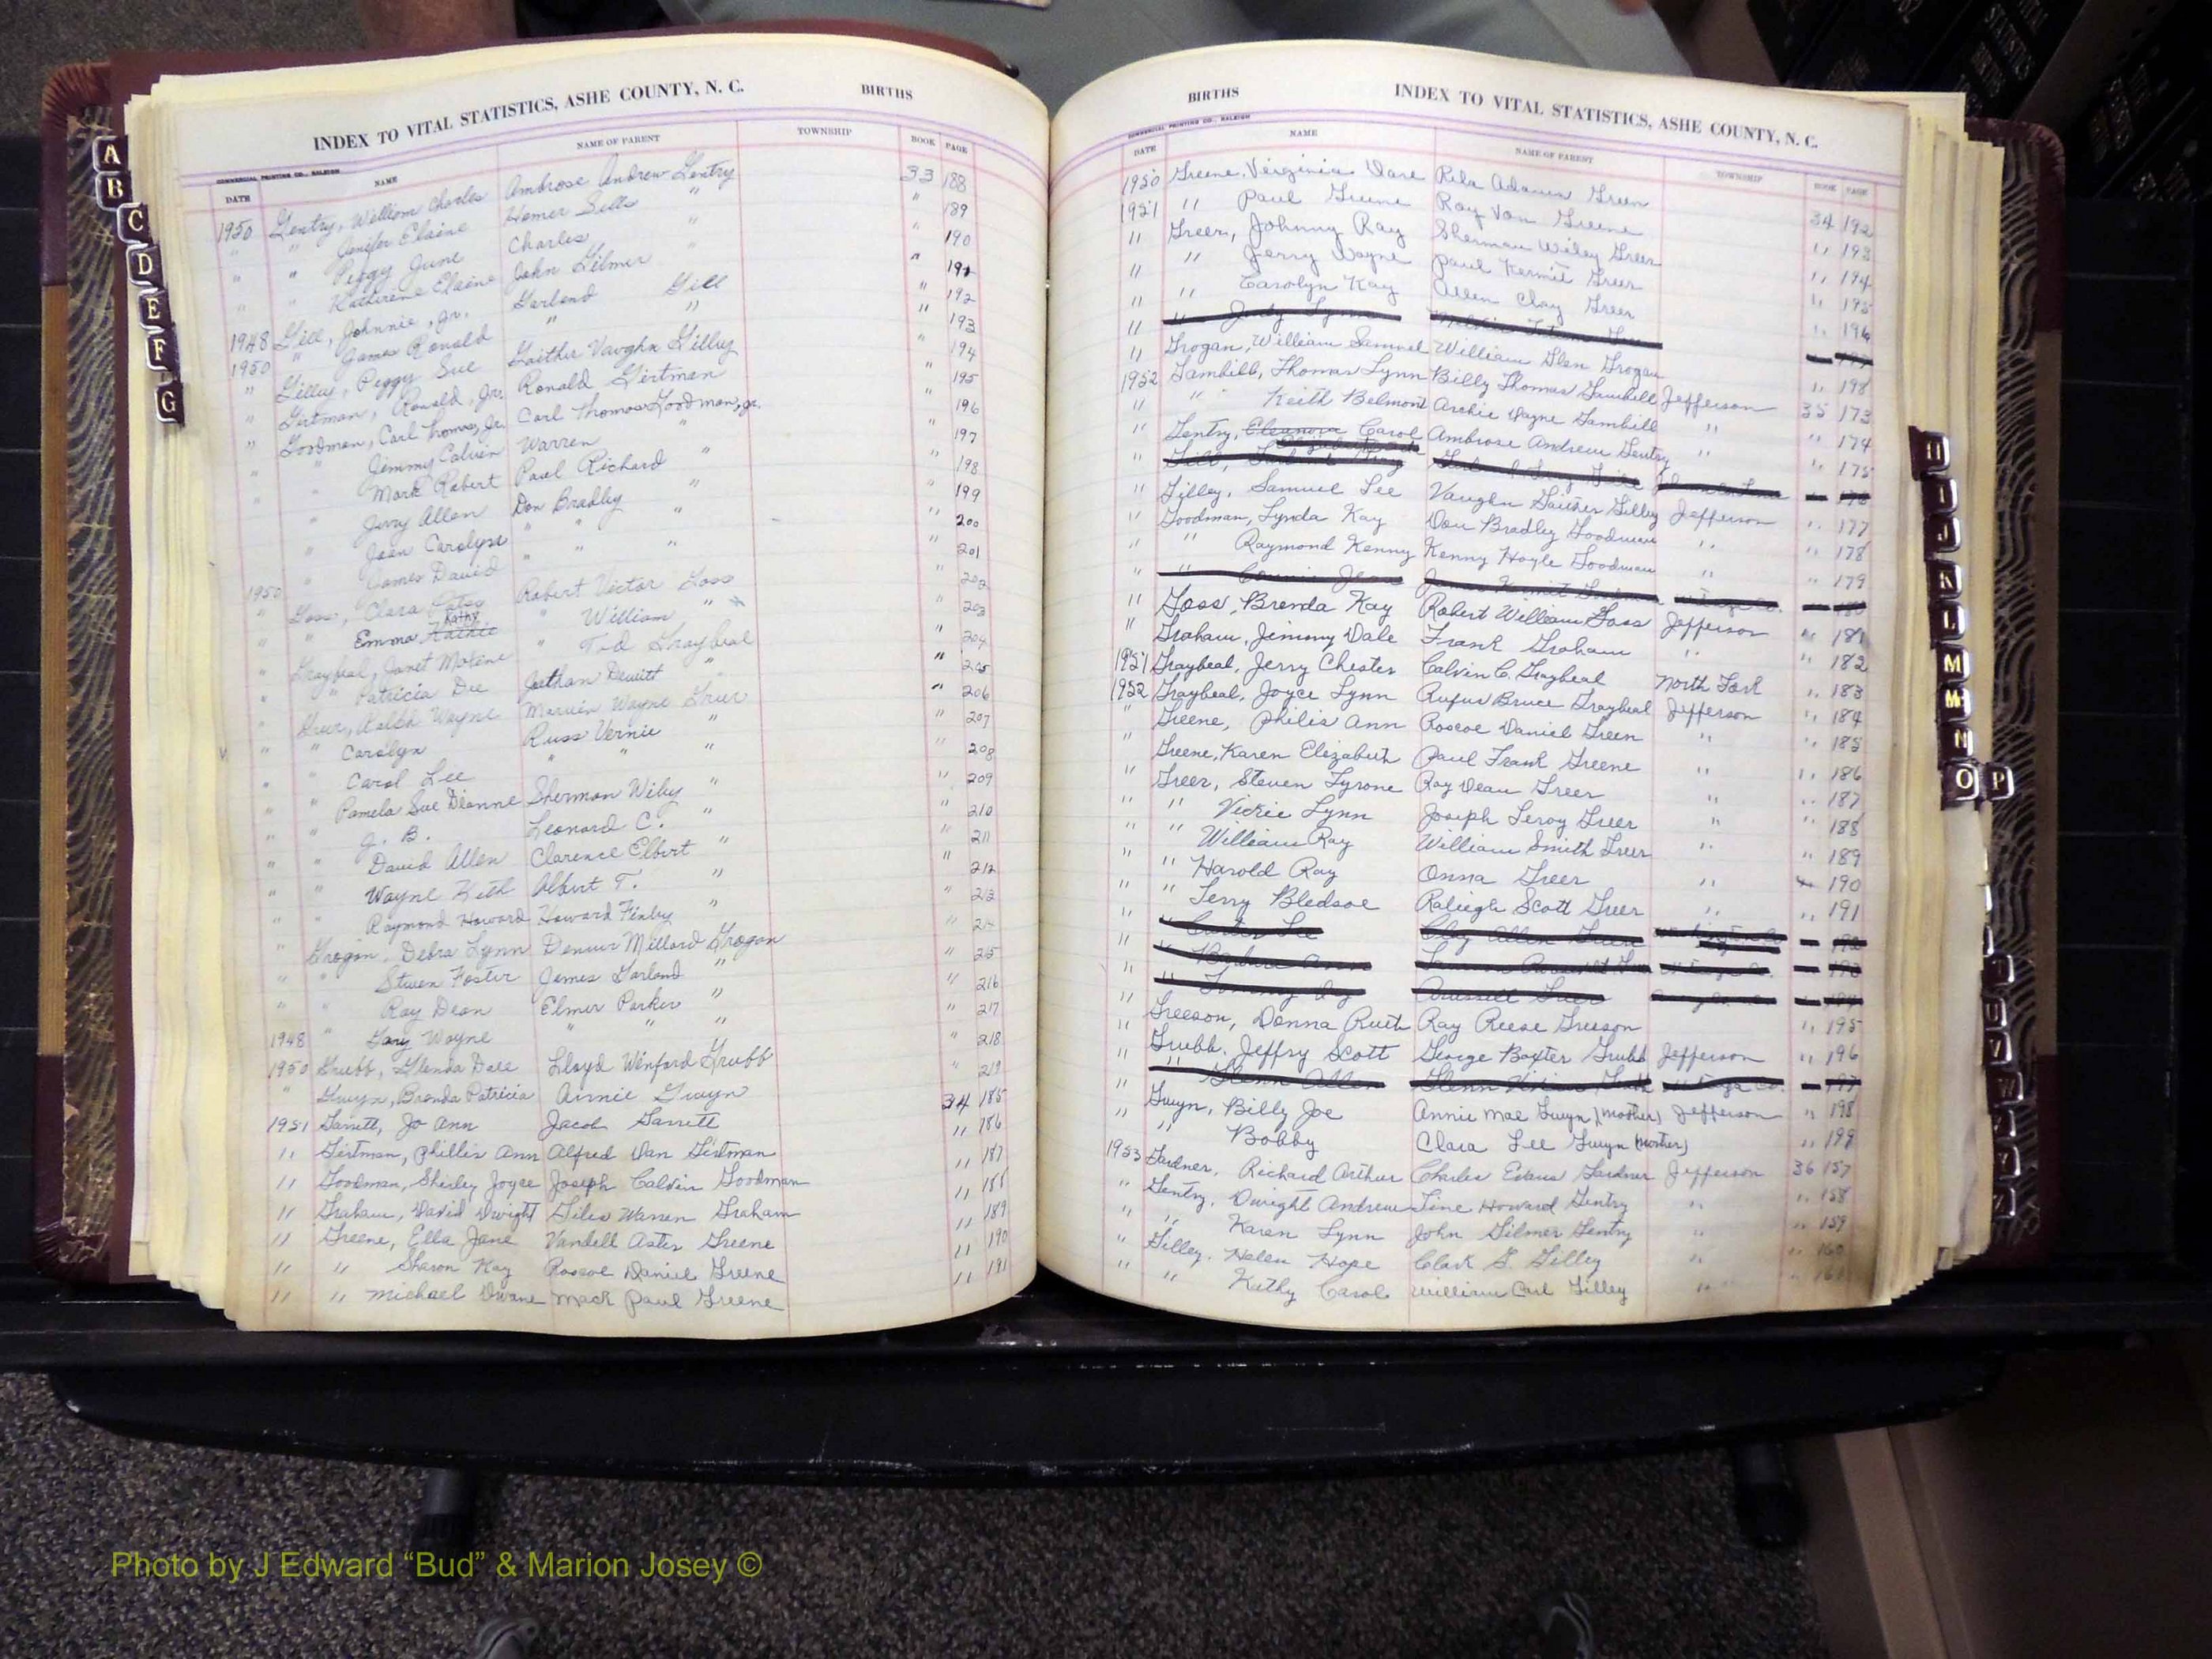 INDEX TO VITAL STATISTICS, ASHE COUNTY, N. C. BIRTHS
COMMERCIAL PRINTING CO., RALEIGH
DATE NAME NAME OF PARENT TOWNSHIP BOOK PAGE
1950 Gentry, William Charles Ambrose Andrew Gentry 33 188
" " Jenifer Elaine Homer Sells " " 189
" " Peggy June Charles " " 190
" " Katherine Elaine John Gilmer " 191
1948 Gill, Johnnie, Jr. Garland Gill " 192
1950 " James Ronald " " " 193
" Gilley, Peggy Sue Gaither Vaughn Gilley " 194
" Girtman, Ronald, Jr. Ronald Girtman " 195
" Goodman, Carl Thomas, Jr. Carl Thomas Goodman, Jr. " 196
" " Jimmy Calvin Warren " " 197
" " Mark Robert Paul Richard " " 198
" Jerry Allen Don Bradley " " 199
" Jean Carolyn " " " " 200
" James David " " " 201
1950 Goss, Clara Patsy Robert Victor Goss " 202
" " Emma Kathy " William " " 203
" Graybeal, Janet Motine " Ted Graybeal " 204
" " Patricia Dee Jathan Dewitt " " 205
" Greer, Ralph Wayne Marvin Wayne Greer " 206
" " Carolyn Russ Vernie " " 207
" " Carol Lee " " " " 208
" " Pamela Sue Dianne Sherman Wiley " " 209
" " J. B. Leonard C. " " 210
" " David Allen Clarence Elbert " " 211
" " Wayne Keith Albert T. " " 212
" " Raymond Howard Howard Finley " " 213
" Grogan, Debra Lynn Denver Millard Grogan "
" " Stuen Foster James Garland " " 215
" " Ray Dean Elmer Parker " " 216
1948 " Gary Wayne " " " " 217
1950 Grubb, Glenda Dale Lloyd Winford Grubb " 218
" Gwyn, Brenda Patricia Annie Gwyn " 219
1951 Garrett, Jo Ann Jacob Garrett 34 185
" Girtman, Phillis Ann Alfred Dan Girtman " 186
" Goodman, Shirley Joyce Joseph Calvin Goodman " 187
" Graham, David Dwight Giles Warren Graham " 188
" Greene, Ella Jane Vandell Aster Greene " 189
" " Sharon Kay Roscoe Daniel Greene " 190
" " Michael Dwane Mack Paul Greene " 191
BIRTHS INDEX TO VITAL STATISTICS, ASHE COUNTY, N. C.
COMMERCIAL PRINTING CO., RALEIGH
DATE NAME NAME OF PARENT TOWNSHIP BOOK PAGE
1950 Greene, Virginia Dare Rila Adams Green 34 192
1951 " Paul Greene Roy Van Greene " 193
" Greer, Johnny Ray Sherman Wiley Greer " 194
" " Jerry Wayne Paul Kermit Greer " 195
" " Carolyn Kay Allen Clay Greer " 196
" " Judy Lynn
" Grogan, William Samuel William Glen Grogan " 198
1952 Gambill, Thomas Lynn Billy Thomas Gambill Jefferson 35 173
" " Keith Belmont Archie Wayne Gambill " " 174
" Gentry, Eleanora Carol Ambrose Andrew Gentry " " 175
" Gilley, Samuel Lee Vaughn Gaither Gilley Jefferson " 177
" Goodman, Lynda Kay Don Bradley Goodman " " 178
" " Raymond Kenny Kenny Hoyle Goodman " " 179
" Connie Jean
" Goss, Brenda Kay Robert William Goss Jefferson " 181
" Graham, Jimmy Dale Frank Graham " " 182
1951 Graybeal, Jerry Chester Calvin C. Graybeal North Fork " 183
1952 Graybeal, Joyce Lynn Rufus Bruce Graybeal Jefferson " 184
" Greene, Philis Ann Roscoe Daniel Green " " 185
" Greene, Karen Elizabeth Paul Frank Greene " " 186
" Greer, Steven Tyrone Ray Dean Greer " " 187
" " Vickie Lynn Joseph Leroy Greer " " 188
" " William Ray William Smith Greer " " 189
" " Harold Ray Onna Greer " " 190
" " Terry Bledsoe Raleigh Scott Greer " " 191
" " Lee Clay Allen
" " Barbara Ann
" " Tommy
" Greeson, Donna Ruth Ray Reese Greeson " 195
" Grubb, Jeffry Scott George Baxter Grubb Jefferson " 196
" " Glenn Allen Glenn
" Gwyn, Billy Joe Annie Mae Gwyn (Mother) Jefferson " 198
" " Bobby Clara Lee Gwyn (Mother) " 199
1953 Gardner, Richard Arthur Charles Evans Gardner Jefferson 36 157
" Gentry, Dwight Andrew Tine Howard Gentry " " 158
" " Karen Lynn John Gilmer Gentry " " 159
" Gilley, Helen Hope Clark G. Gilley " " 160
" " Kathy Carol William Carl Gilley " " 161
A
B
C
D
E
F
G
H
I
J
K
L
M
Mc
N
O P
Photo by J Edward “Bud” & Marion Josey ©